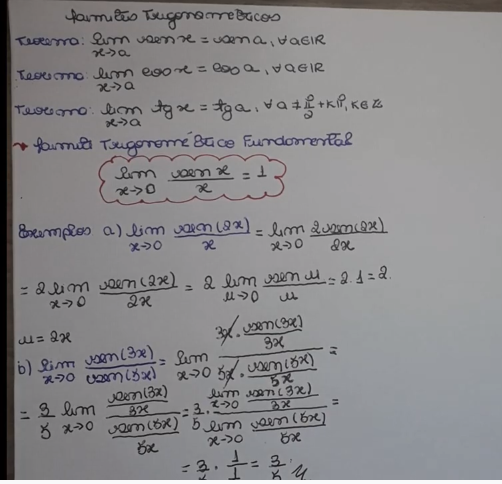 Limites Trigonométricos
Teorema: lim x→a sen x = sen a, ∀a∈ℝ
Teorema: lim x→a cos x = cos a, ∀a∈ℝ
Teorema: lim x→a tg x = tg a, ∀a ≠ π/2 + kπ, k∈ℤ
* Limite Trigonométrico Fundamental
lim x→0 sen x / x = 1
Exemplos a) lim x→0 sen(2x)/x = lim x→0 2sen(2x)/2x
= 2 lim x→0 sen(2x)/2x = 2 lim u→0 sen u/u = 2.1 = 2.
u = 2x
b) lim x→0 sen(3x)/sen(5x) = lim x→0 (3x · sen(3x)/3x)/(5x · sen(5x)/5x) =
= 3/5 lim x→0 (sen(3x)/3x)/(sen(5x)/5x) = 3/5 · (lim x→0 sen(3x)/3x)/(lim x→0 sen(5x)/5x) =
= 3/5 · 1/1 = 3/5